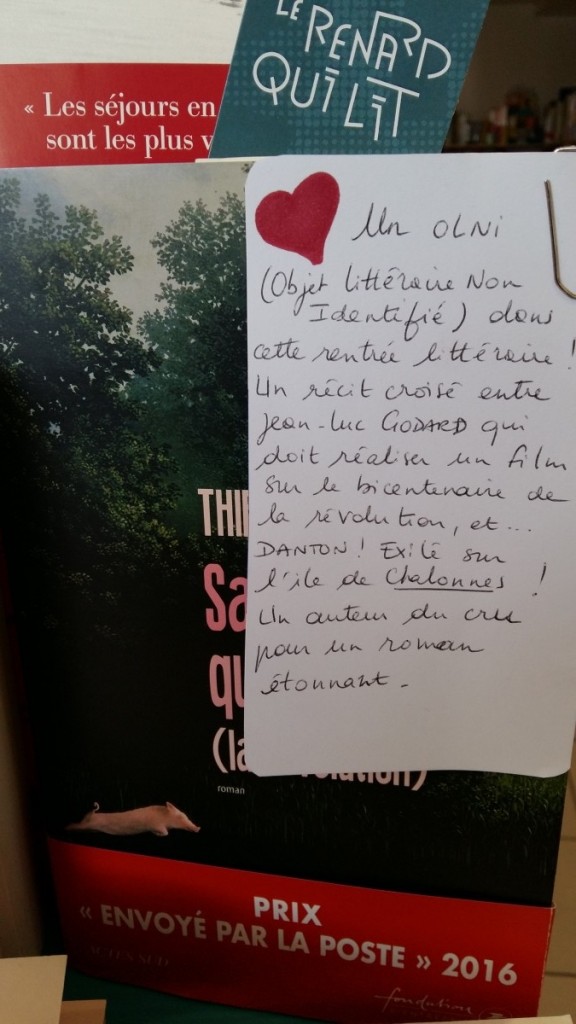 LE RENARD
QUI LIT
« Les séjours en
sont les plus v
Un OLNI
(Objet littéraire Non
Identifié) dans
cette rentrée littéraire !
Un récit croisé entre
Jean-Luc GODARD qui
doit réaliser un film
sur le bicentenaire de
la révolution, et...
DANTON ! Exilé sur
l'île de Chalonnes !
Un auteur du cru
pour un roman
étonnant -
THI
Sa
qu
(la olution)
roman
PRIX
« ENVOYÉ PAR LA POSTE » 2016
ACTES SUD
fondation